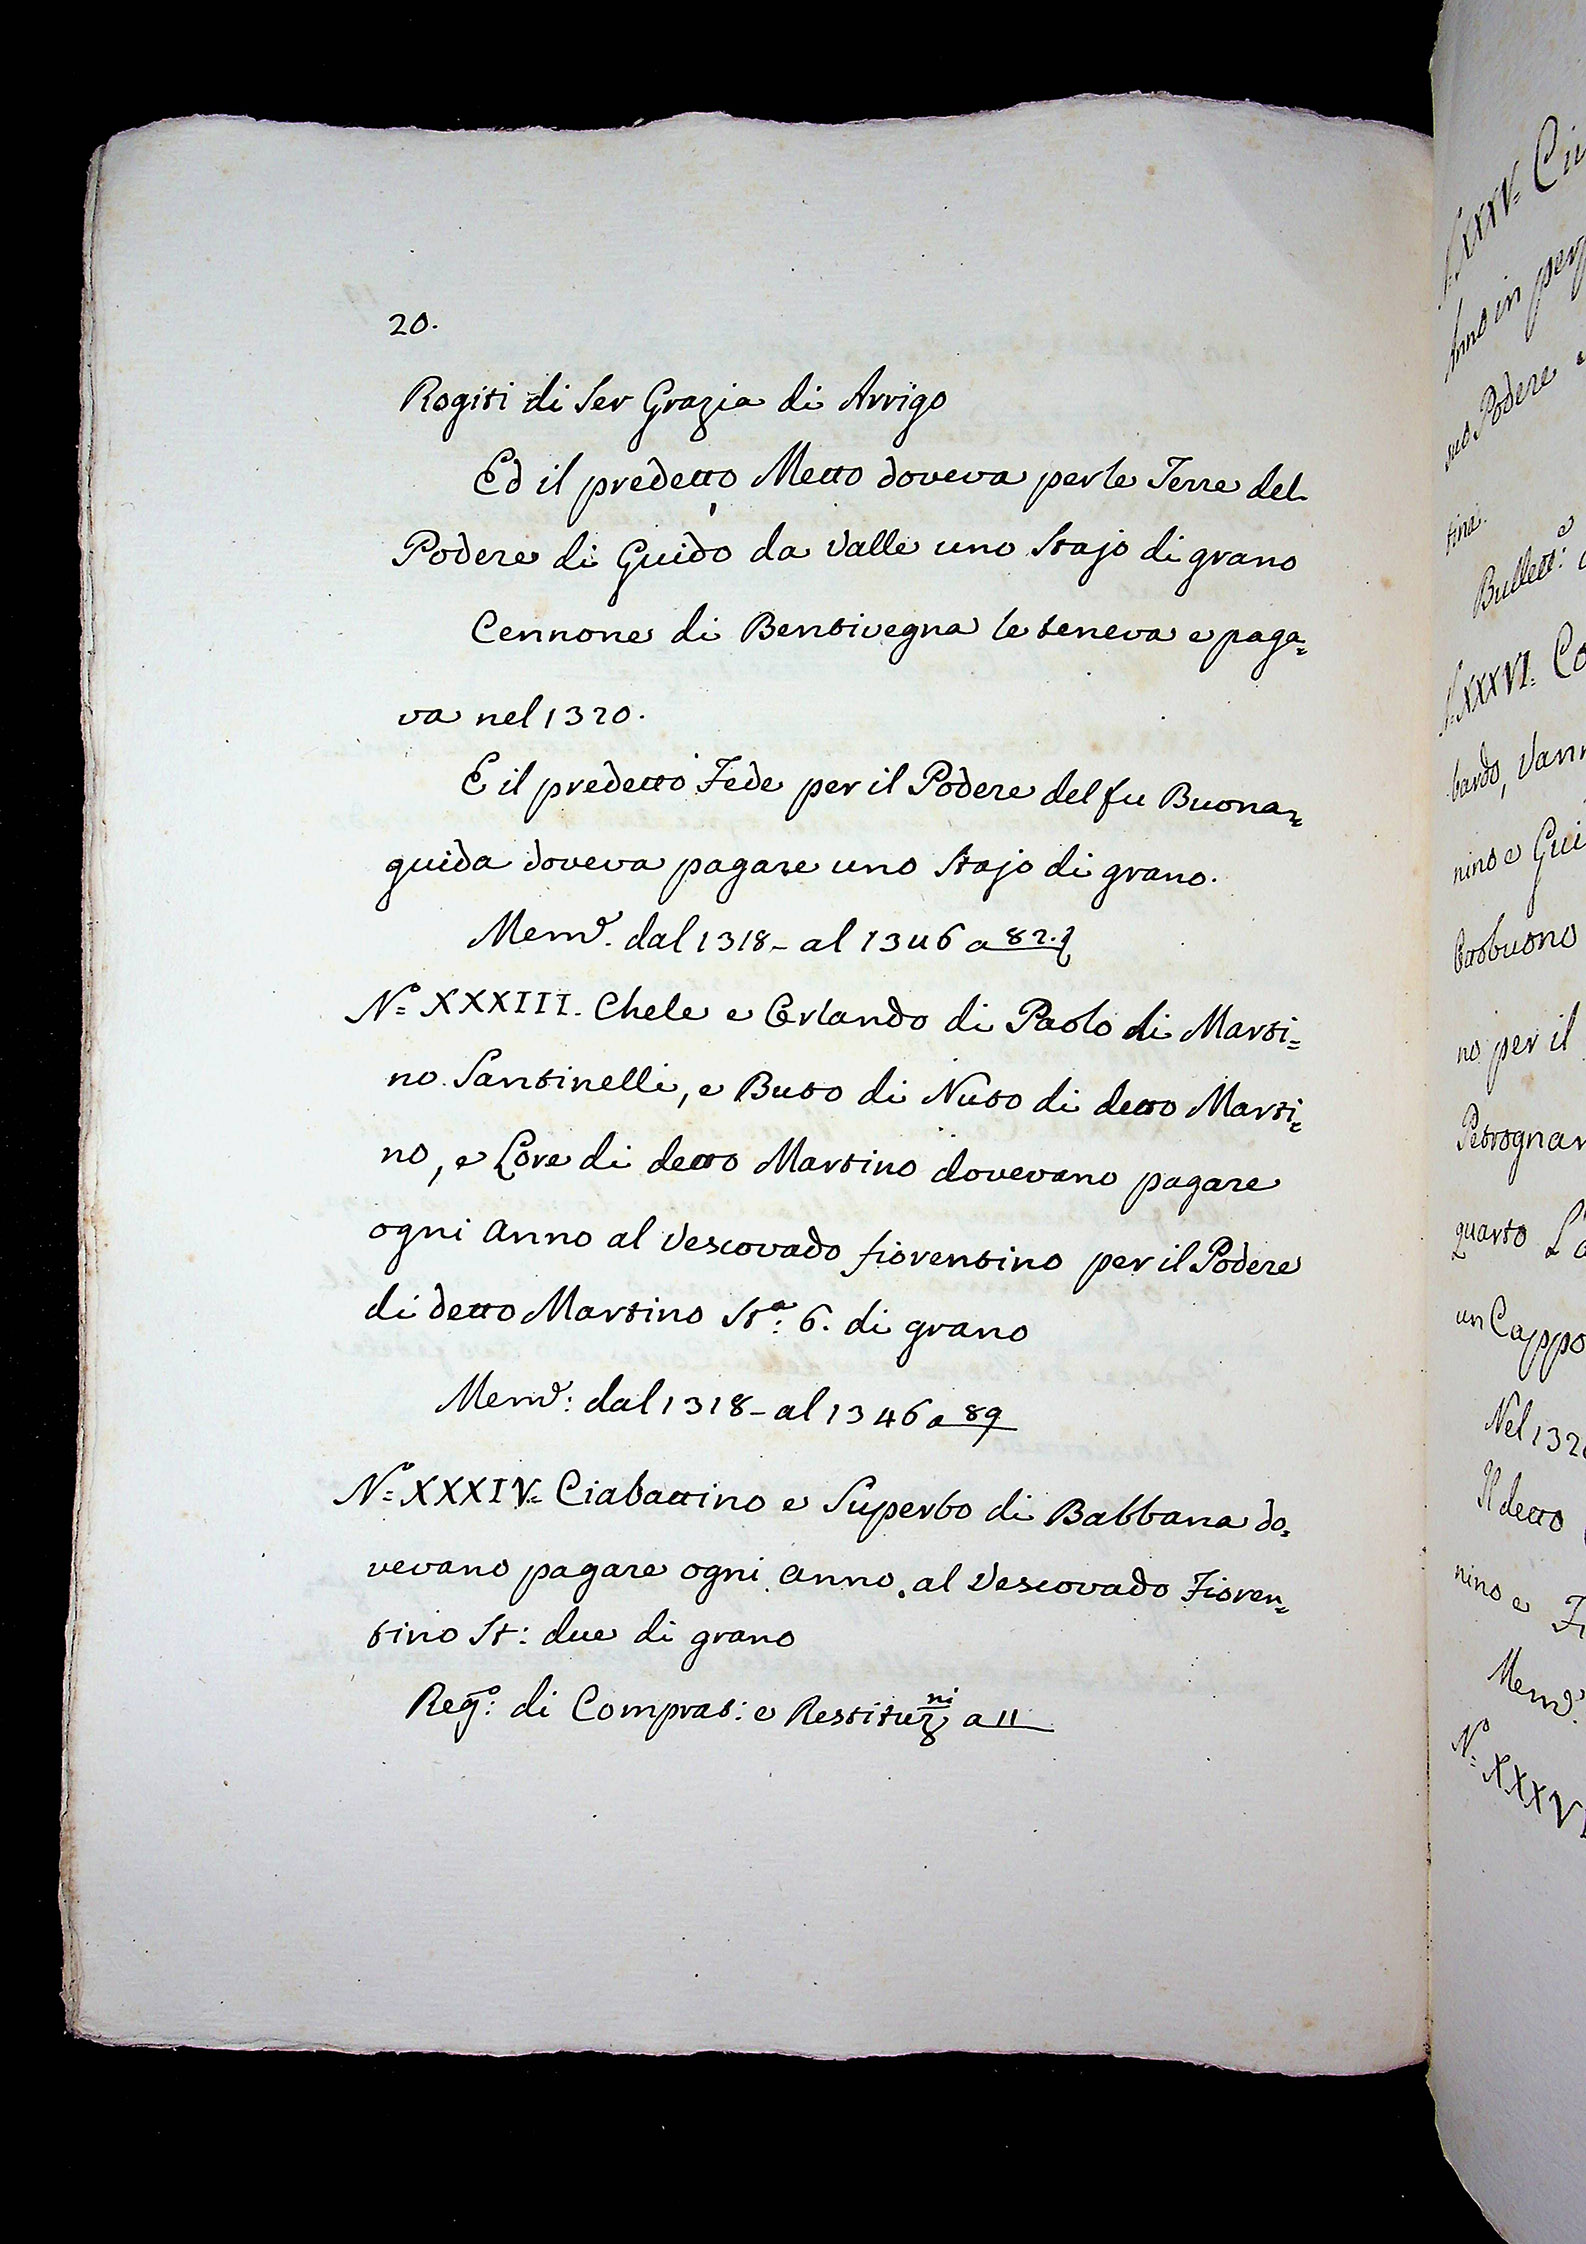 20.
Rogiti di Ser Grazia di Arrigo
Ed il predetto Metto doveva per le Terre del
Podere di Guido da Valle uno Stajo di grano
Cennone di Bentivegna le teneva e paga=
va nel 1320.
E il predetto Fede per il Podere del fu Buona=
guida doveva pagare uno Stajo di grano.
Memᵉ. dal 1318 - al 1346 a 82.
Nº= XXXIII. Chele e Orlando di Paolo di Marti=
no Santinelli, e Buto di Nuto di detto Marti=
no, e Lore di detto Martino dovevano pagare
ogni anno al Vescovado fiorentino per il Podere
di detto Martino Stª: 6. di grano
Memᵉ: dal 1318 - al 1346 a 89
Nº= XXXIV= Ciabattino e Superbo di Babbana do=
vevano pagare ogni anno al Vescovado Fioren=
tino St: due di grano
Regº: di Comprat: e Restituzⁿⁱ a 11
XXXV= Ciu
Anno in perp
suo Podere
tina.
Bulletᵉ:
XXXVI= Co
bardo, Vann
nino e Gui
Casbuono
no per il
Petrognan
quarto L'a
un Cappo
Nel 132
Il detto
nino e Fi
Memᵉ.
Nº= XXXVI